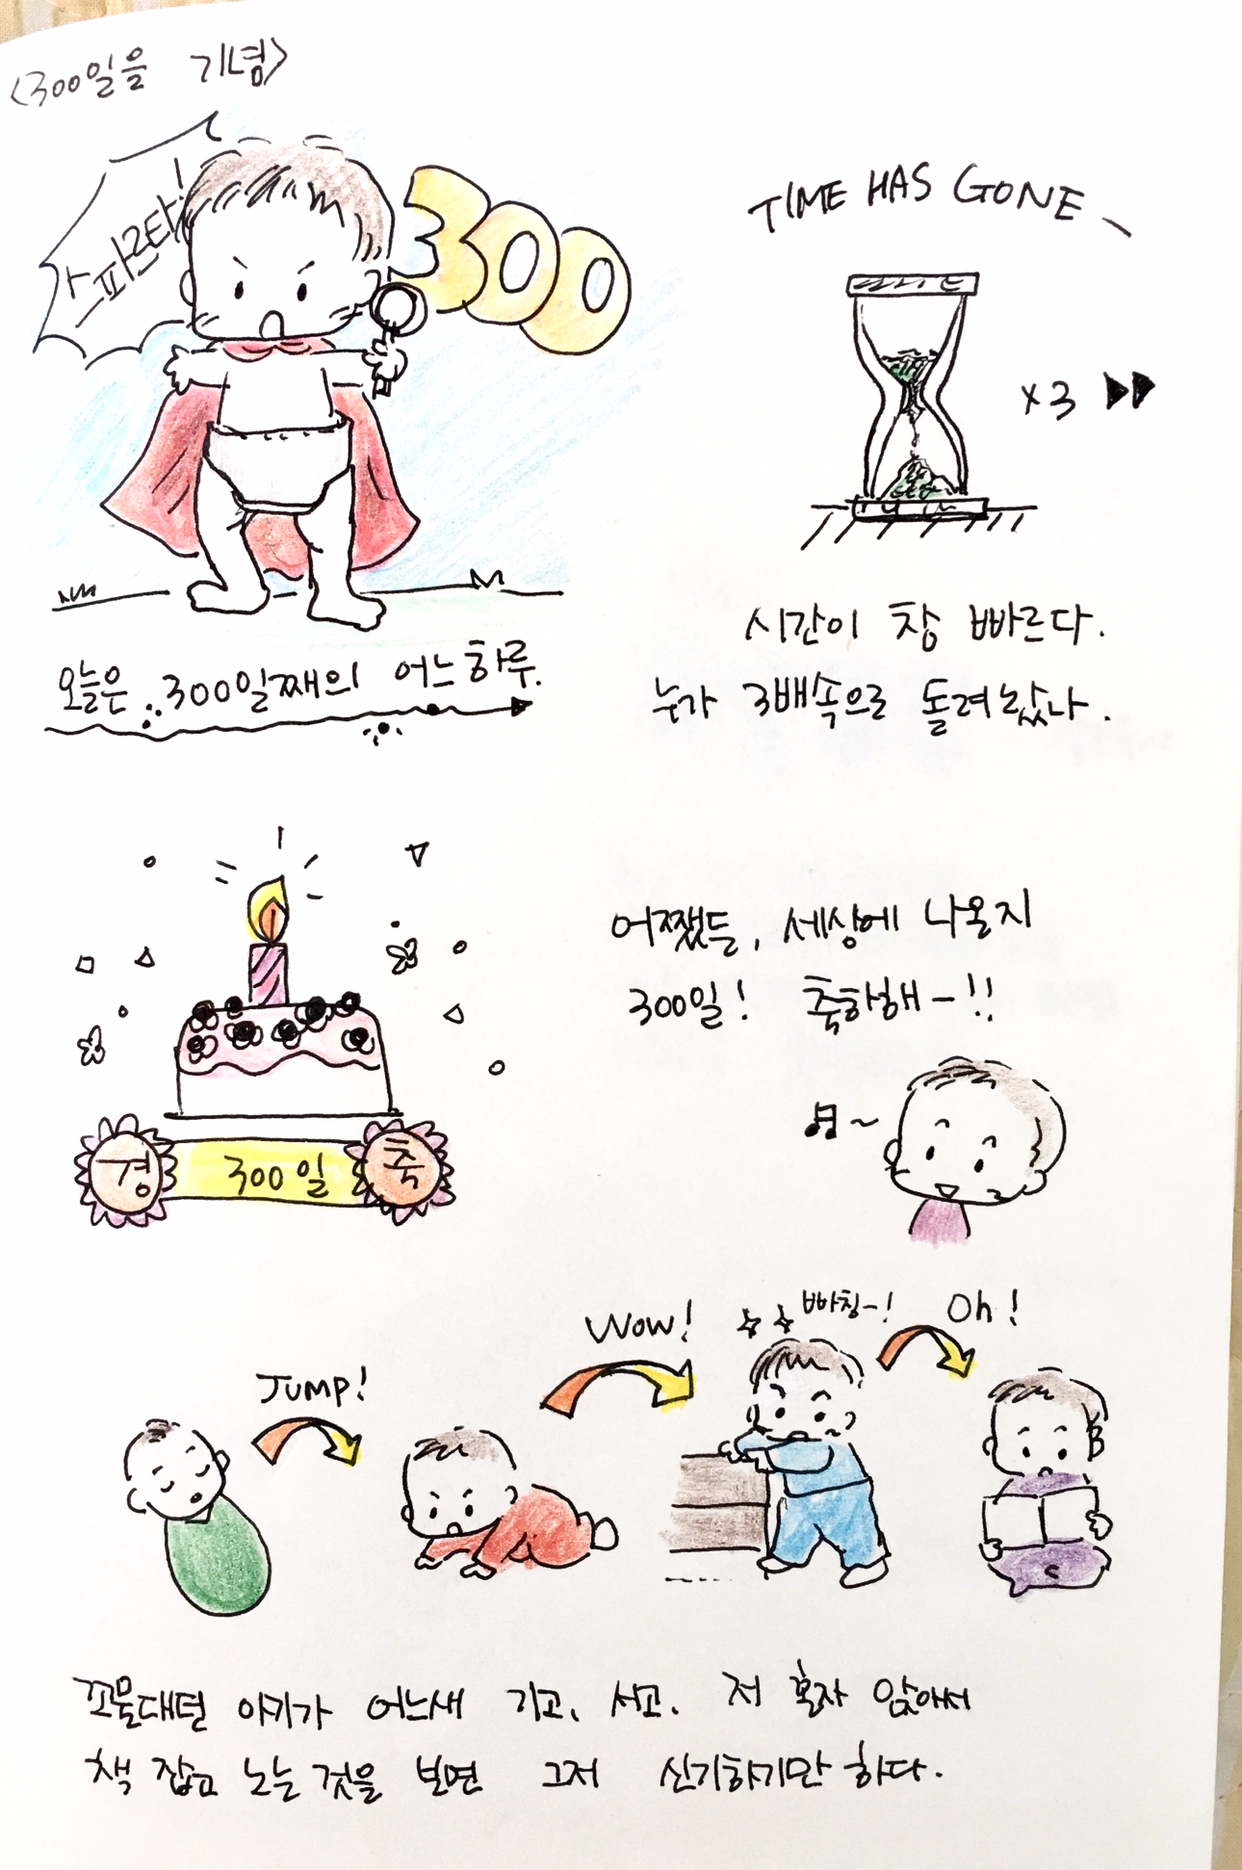 <300일을 기념>
스파르타!
300
오늘은 300일째의 어느 하루.
TIME HAS GONE
x3
시간이 참 빠르다.
누가 3배속으로 돌려놨나.
어쨌든, 세상에 나온지
300일! 축하해~!!
경 300일 축
JUMP!
Wow!
빠칭~!
Oh!
꼬물대던 아기가 어느새 기고, 서고, 저 혼자 앉아서
책 잡고 노는 것을 보면 그저 신기하기만 하다.